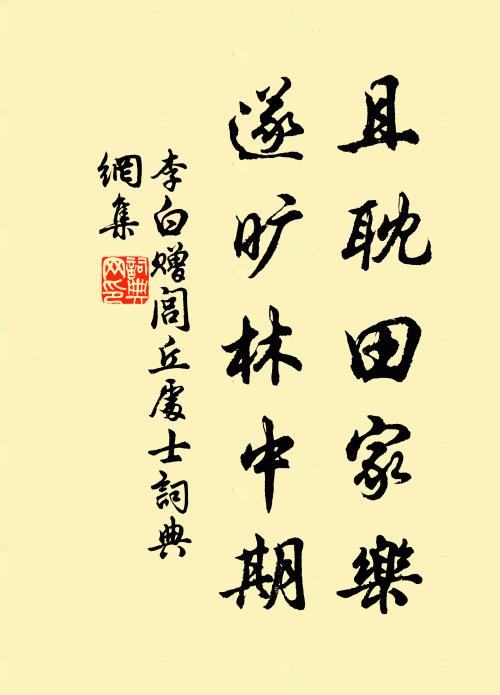 且耽田家樂
遂旷林中期
李白赠閭丘處士詞典
網集
詞典
网印